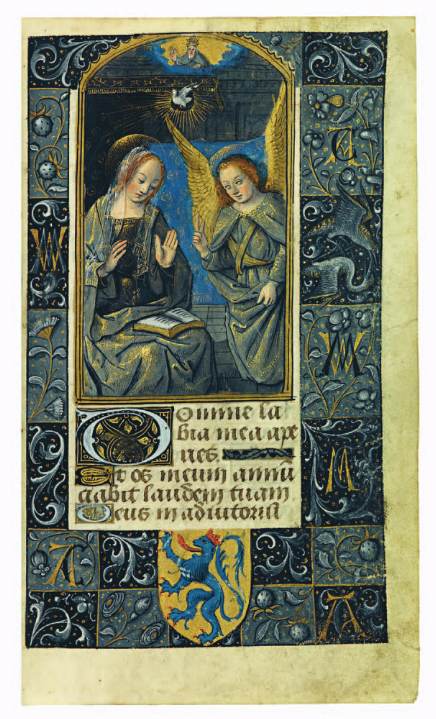 Domine la
bia mea ape
ries.
Et os meum annu
ciabit laudem tuam
Deus in adiutoriu
M
A
A